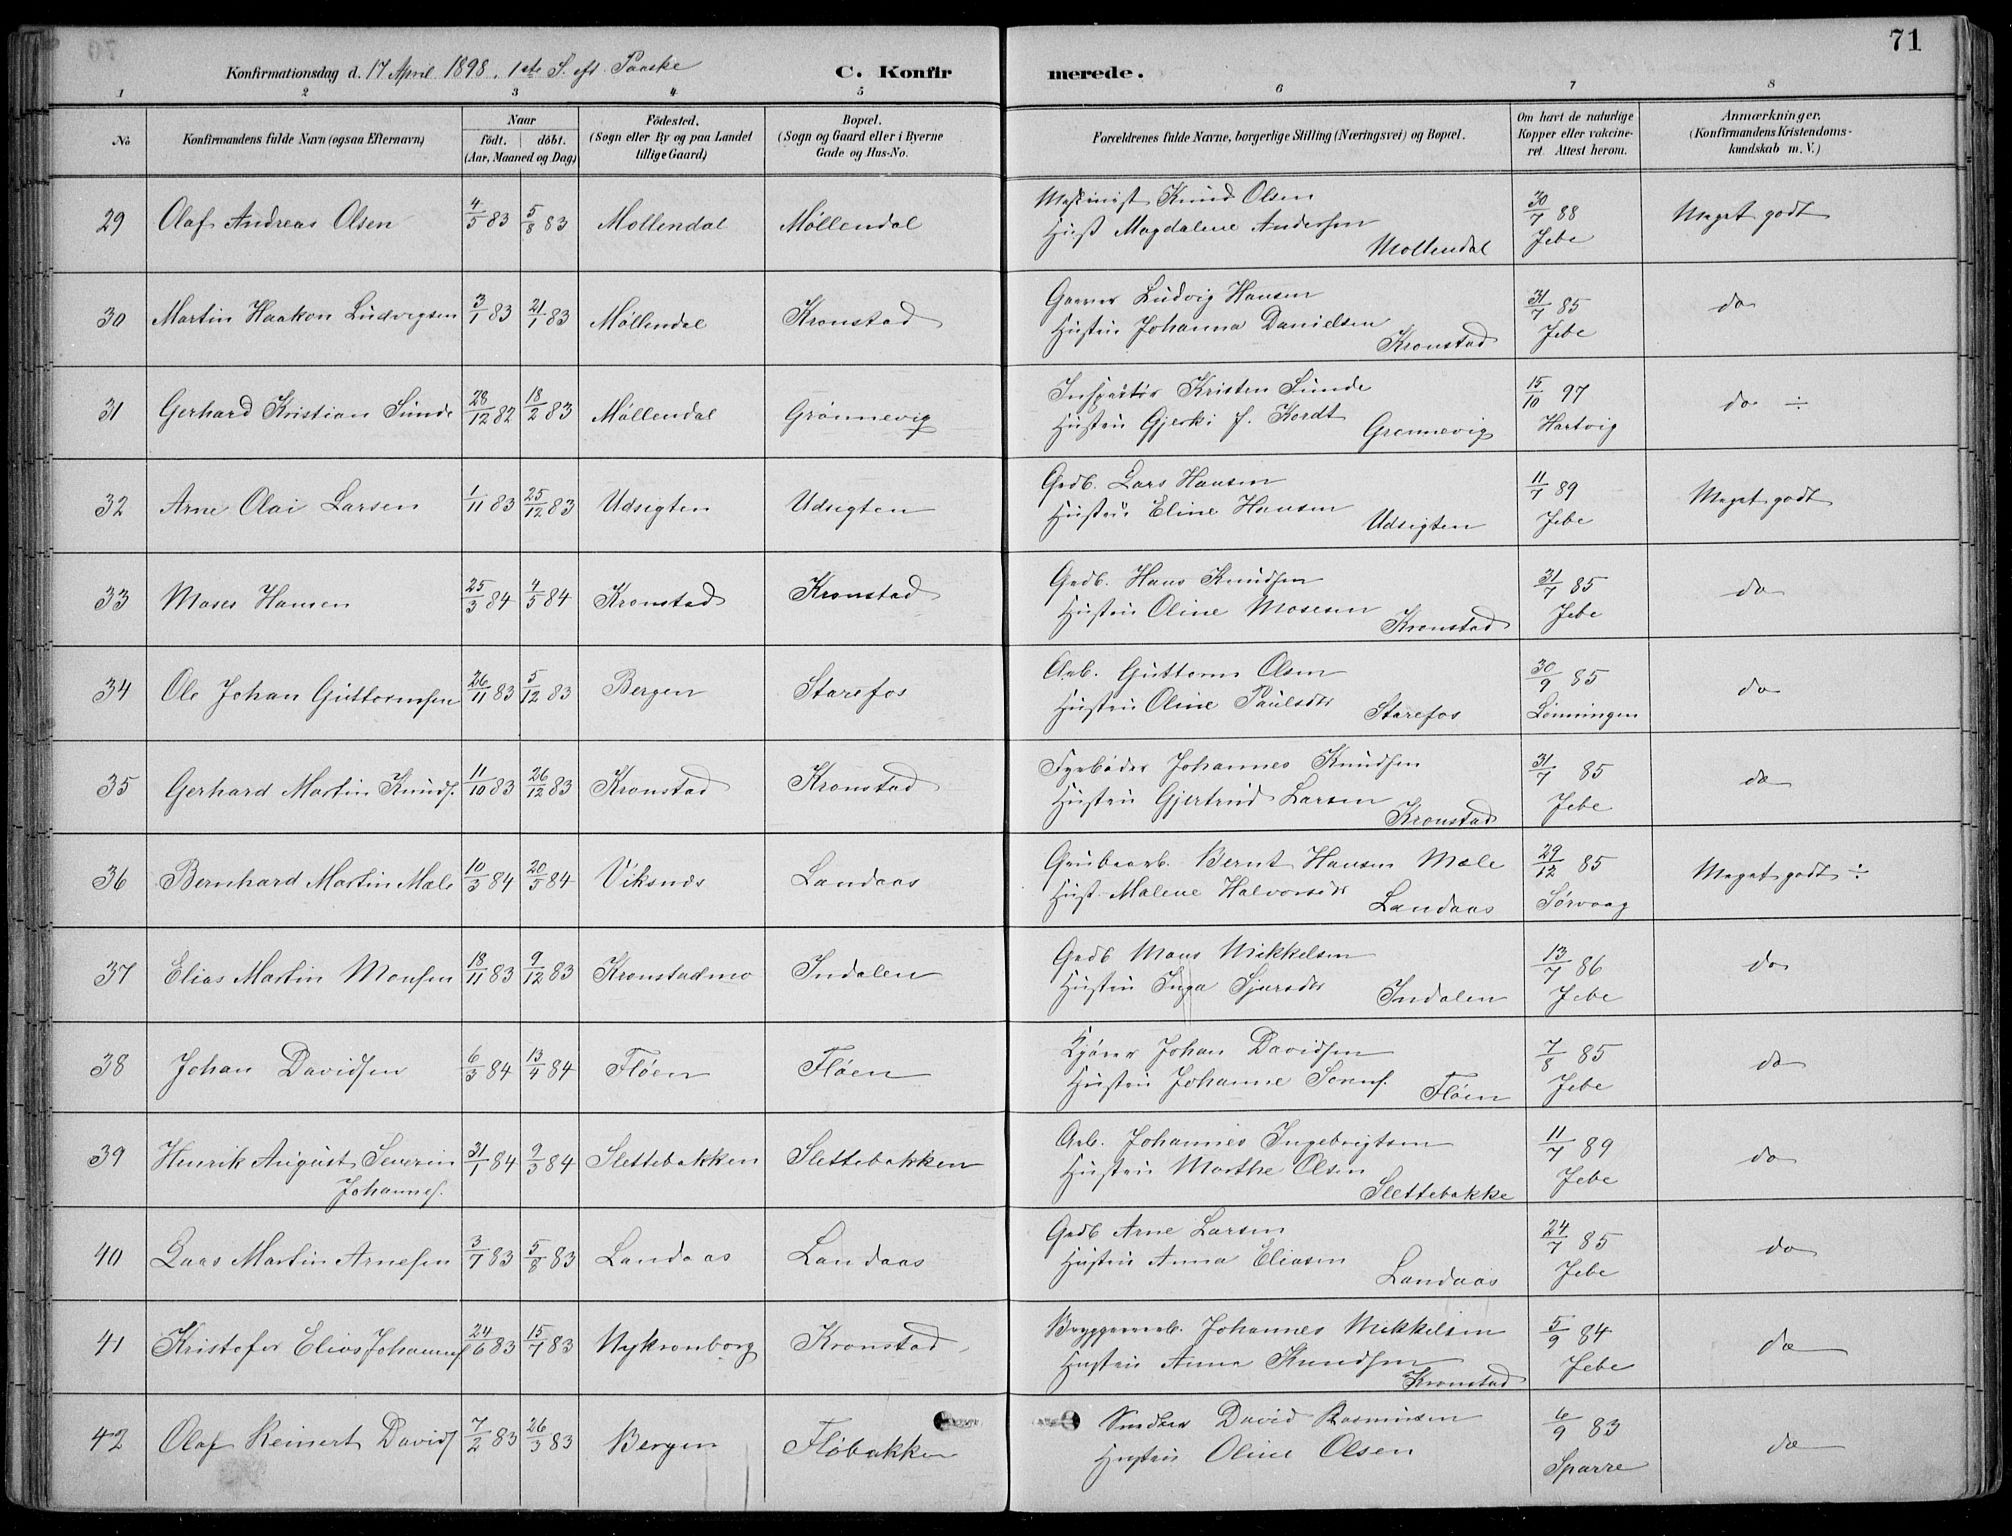 71
Konfirmationsdag d. 17 April 1898. 1ste S. eft. Paaske
C. Konfirmerede.
1 2 3 4 5 6 7 8
No
Konfirmandens fulde Navn (ogsaa Efternavn)
Naar
födt. döbt.
(Aar, Maaned og Dag)
Födested.
(Sogn eller By og paa Landet
tillige Gaard)
Bopæl.
(Sogn og Gaard eller i Byerne
Gade og Hus-No.
Forældrenes fulde Navne, borgerlige Stilling (Næringsvei) og Bopæl.
Om havt de naturlige
Kopper eller vakcine-
ret. Attest herom.
Anmærkninger.
(Konfirmandens Kristendoms-
kundskab m. V.)
29 Olaf Andreas Olsen 4/5 83 5/8 83 Møllendal Møllendal
Maskinist Knud Olsen
Hust Magdalene Andersen
Møllendal
30/7 88
Jebe
Meget godt
30 Martin Haakon Ludvigsen 3/1 83 21/1 83 Møllendal Kronstad
Garver Ludvig Hansen
Hustru Johanna Danielsen
Kronstad
31/7 85
Jebe
do
31 Gerhard Kristian Sunde 28/12 82 18/2 83 Møllendal Grønnevig
Inspektør Kristen Sunde
Hustru Gjerki f. Kordt
Grønnevig
15/10 97
Hartvig
do ÷
32 Arne Olai Larsen 1/11 83 25/12 83 Udsigten Udsigten
Grdb. Lars Hansen
Hustru Eline Hansen
Udsigten
11/7 89
Jebe
Meget godt
33 Moses Hansen 25/3 84 4/5 84 Kronstad Kronstad
Grdb. Hans Knudsen
Hustru Oline Mosesen
Kronstad
31/7 85
Jebe
do
34 Ole Johan Guttormsen 26/11 83 5/12 83 Bergen Starefos
Arb. Guttorm Olsen
Hustru Oline Paulsdtr
Starefos
30/9 85
Lønningen
do
35 Gerhard Martin Knuds. 11/10 83 26/12 83 Kronstad Kronstad
Fyrbøder Johannes Knudsen
Hustru Gjertrud Larsen
Kronstad
31/7 85
Jebe
do
36 Bernhard Martin Mæle 10/3 84 20/5 84 Viksnæs Landaas
Grubearb. Bernt Hansen Mæle
Hust. Malene Halvorsdtr
Landaas
29/12 85
Sørvaag
Meget godt ÷
37 Elias Martin Monsen 18/11 83 9/12 83 Kronstadmo Indalen
Grdb Mons Mikkelsen
Hustru Inga Sjursdtr
Indalen
13/7 86
Jebe
do
38 Johan Davidsen 6/3 84 13/4 84 Fløen Fløen
Kjører Johan Davidsen
Hustru Johanne
Fløen
7/8 85
Jebe
do
39 Henrik August Severin 31/1 84 9/3 84 Slettebakken Slettebakken
Johannes.
Arb. Johannes Ingebrigtsen
Hustru Marthe Olsen
Slettebakke
11/7 89
Jebe
do
40 Lars Martin Arnesen 3/7 83 5/8 83 Landaas Landaas
Grdb Arne Larsen
Hustru Anna Eliasen
Landaas
24/7 85
Jebe
do
41 Kristofer Elias Johannes 24/6 83 15/7 83 Nykronborg Kronstad
Bryggeriarb. Johannes Mikkelsen
Hustru Anna Knudsen
Kronstad
5/9 84
Jebe
do
42 Olaf Reinert Davids 7/2 83 26/3 83 Bergen Fløbakken
Snedker David Rasmusen
Hustru Oline Olsen
6/9 83
Sparre
do